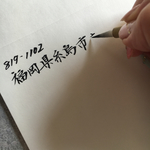 819-1102
福岡県糸島市